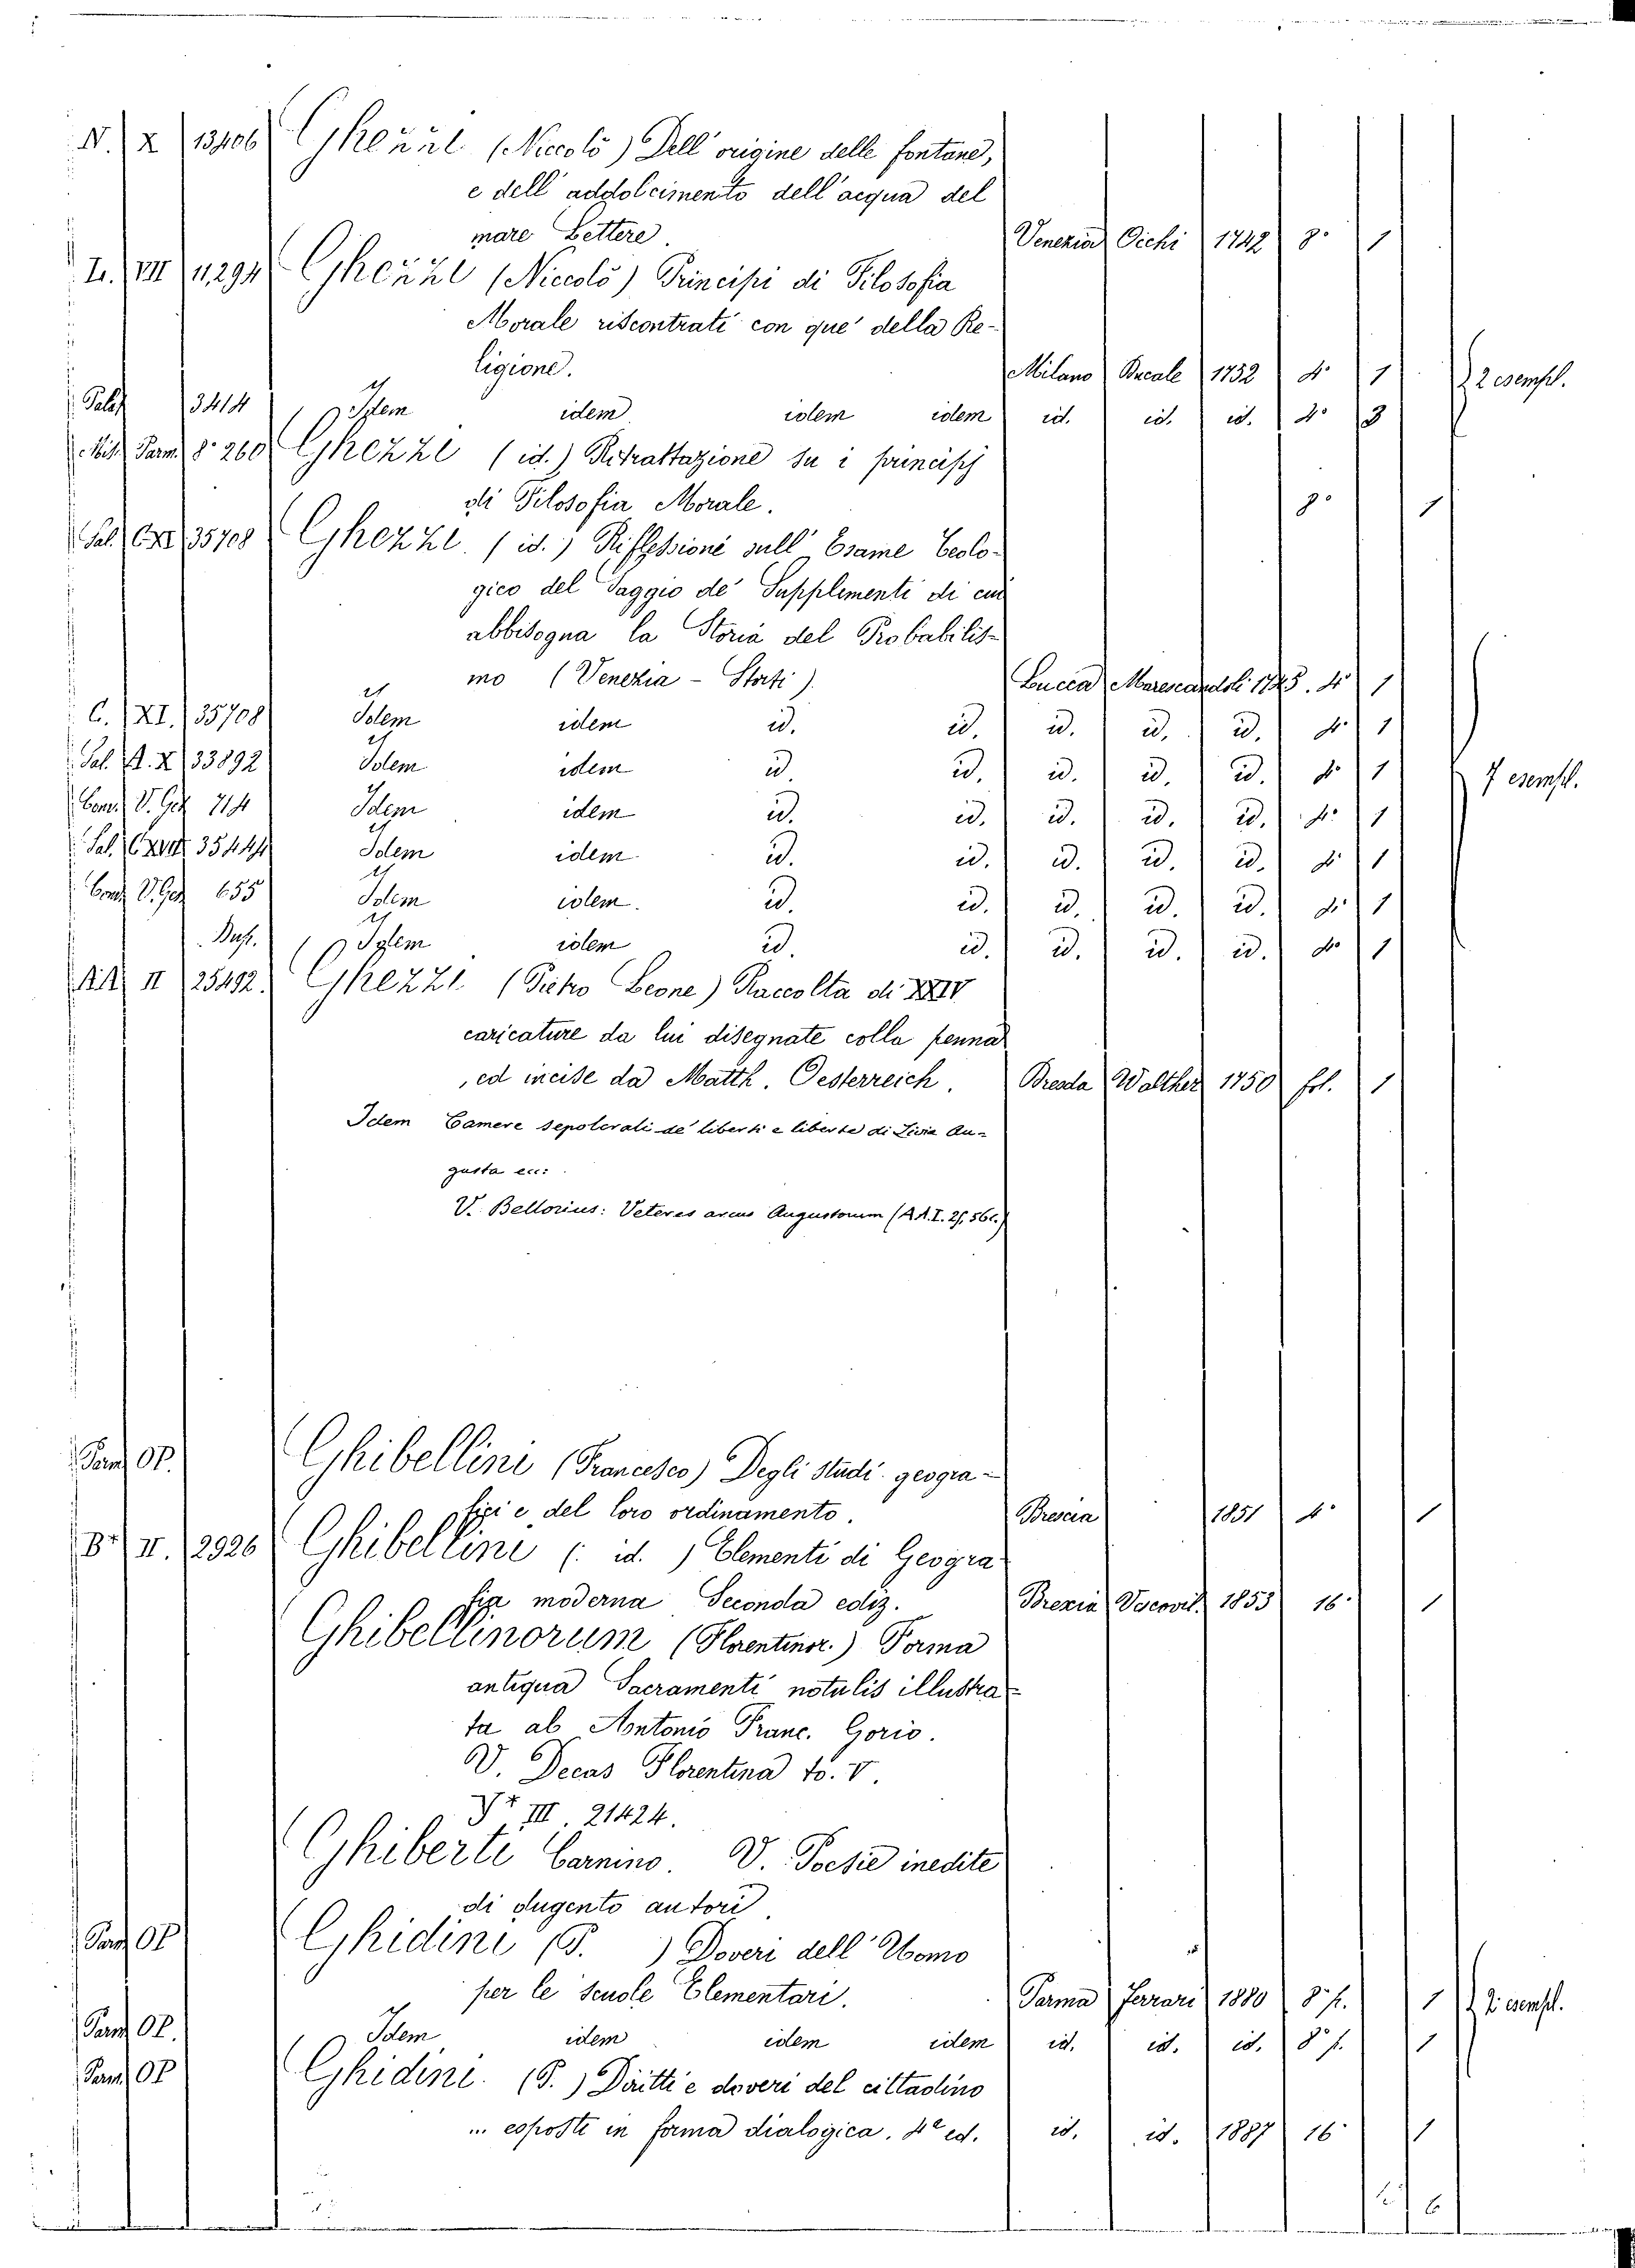 N. X 13406 Ghezzi (Niccolò) Dell'origine delle fontane,
e dell'addolcimento dell'acqua del
mare Lettere. Venezia Occhi 1742 8° 1
L. VII 11,294 Ghezzi (Niccolò) Principi di Filosofia
Morale riscontrati con que' della Re-
ligione. Milano 1752 4° 1 2 esempl.
Palat 3414 Idem idem idem idem id. id. id. 4° 3
Mis. Parm. 8° 260 Ghezzi (id.) Ritrattazione su i principj
di Filosofia Morale. 8° 1
Sal. 35708 Ghezzi (id.) Riflessioni sull'Esame Teolo-
gico del Saggio de' Supplementi di cui
abbisogna la Storia del Probabilis-
mo (Venezia - Storti). Lucca Marescandoli 1745. 4° 1
C. XI. 35708 Idem idem id. id. id. id. id. 4° 1
Sal. A. X 33892 Idem idem id. id. id. id. id. 4° 1 7 esempl.
Conv. V. Ges. 714 Idem idem id. id. id. id. id. 4° 1
Sal. 35444 Idem idem id. id. id. id. id. 4° 1
Conv. V. Ges. 655 Idem idem. id. id. id. id. id. 4° 1
Dup. Idem idem id. id. id. id. id. 4° 1
II 25492. Ghezzi (Pietro Leone) Raccolta di XXIV
caricature da lui disegnate colla penna
, ed incise da Matth. Oesterreich. Dresda Walther 1750 fol. 1
Idem Camere sepolcrali de' liberti e liberte di Livia Au-
gusta ecc:
V. Bellorius: Veteres arcus Augustorum (AA. I. 27,561.)
Parm OP. Ghibellini (Francesco) Degli studi geogra-
fici e del loro ordinamento. Brescia 1851 4° 1
Br. II. 2926 Ghibellini (id.) Elementi di Geogra
fia moderna Seconda ediz. Brexia Vescovil. 1853 16° 1
Ghibellinorum (Florentinor.) Forma
antiqua Sacramenti notulis illustra-
ta ab Antonio Franc. Gorio.
V. Decas Florentina to. V.
III. 21424.
Ghiberti Carnino. V. Poesie inedite
di dugento autori.
Parm OP Ghidini (P. ) Doveri dell'Uomo
per le scuole Elementari. Parma Ferrari 1880 8° p. 1 2 esempl.
Parm OP. Idem idem idem idem id. id. id. 8° p. 1
Parm OP Ghidini (P.) Diritti e doveri del cittadino
... esposti in forma dialogica. 4a ed. id. id. 1887 16° 1